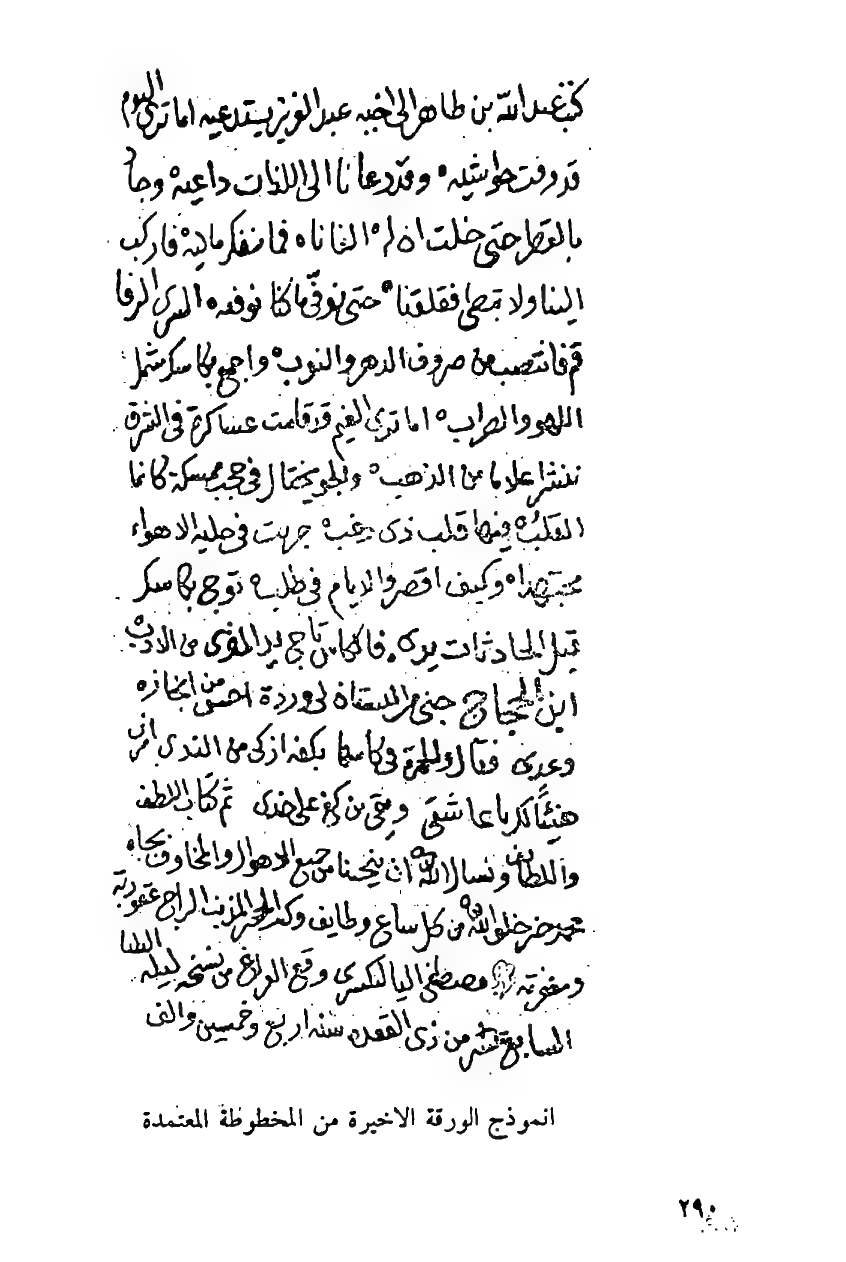 كتب عبد الله بن طاهر الى اخيه عبد العزيز يستدعيه اما ترى اليوم
قد رقت حواشيه وقد دعانا الى اللذات داعيه وجاد
بالقطر حتى خلت ان له الفا ناه فما ينفك يبكيه فاركب
الينا ولا تبطى فقلقنا حتى نوفى ما كنا نوفيه السرى الرفا
قم فانتصب من صروف الدهر والنوب واجمع بكاسك شمل
اللهو والطرب اما ترى الغيم قد قامت عساكره فى الشرق
تنشر اعلاما من الذهب والجو يختال فى حجب ممسكة كانما
القلب فيها قلب ذى رعب جريت فى حلبه الاهواء
مجتهدا وكيف اقصر والايام فى طلبى توج بكاسك
قبل الحادثات يدى فالكاس تاج يد المثرى من الادب
ابن الحجاج جنى من البستان لى وردة احسن من انجازه
وعدى فقال والخمرة فى كاسها بكفه ازكى من الندى اشرب
هنيئا لك يا عاشقى ريقى من كفى على خدى تم كتاب اللطف
واللطايف ونسال الله ان ينجينا من جميع الاهوال والمخاوف بجاه
محمد خير خلق الله من كل ساع وطايف وكتبه الحقير المذنب الراجى عفو ربه
ومغفرته مصطفى اليالنكسرى وقع الفراغ من نسخه ليله الثلثا
السابع عشر من ذى القعده سنه اربع وخمسين والف
انموذج الورقة الاخيرة من المخطوطة المعتمدة
٢٩٠